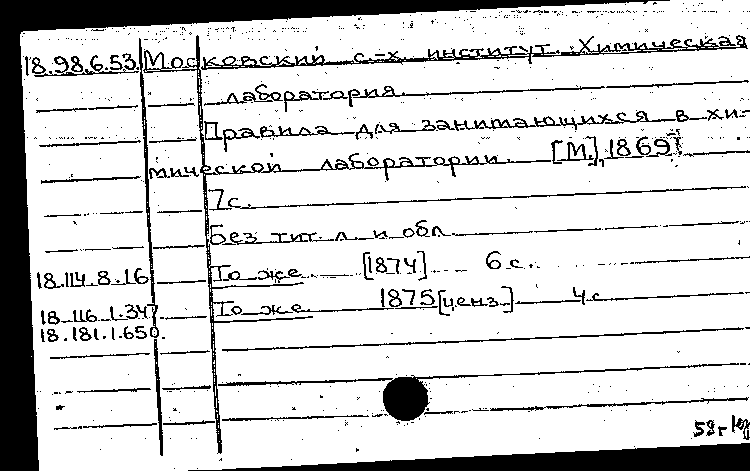 18.98.6.53. Московский с.-х. институт. Химическая
лаборатория.
Правила для занимающихся в хи-
мической лаборатории. [М.], 1869
7с.
Без тит. л. и обл.
18.114.8.16 То же. [1874] 6 с.
18.116.1.347 То же. 1875 [ценз.] 4 с
18.181.1.650.